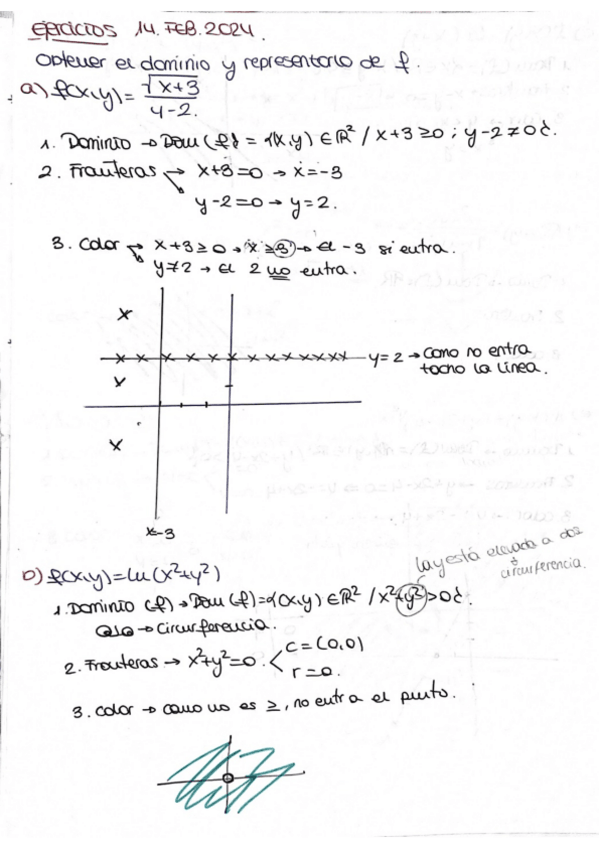 ejercicios 14. FEB. 2024.
Obtener el dominio y representarlo de f.
a) f(x,y) = √x+3 / y-2.
1. Dominio → Dom (f) = {(x,y) ∈ ℝ² / x+3 ≥ 0 ; y-2 ≠ 0}.
2. Fronteras → x+3=0 → x=-3
y-2=0 → y=2.
3. Color → x+3 ≥ 0 → x ≥ -3 → el -3 si entra.
y ≠ 2 → el 2 no entra.
y=2 → como no entra
tacho la línea.
x=-3
b) f(x,y) = ln(x²+y²)
la y está elevada a dos
circunferencia.
1. Dominio (f) → Dom (f) = {(x,y) ∈ ℝ² / x²+y² > 0}.
Ojo → Circunferencia.
2. Fronteras → x²+y²=0. < C = (0,0)
r = 0.
3. Color → como no es ≥, no entra el punto.